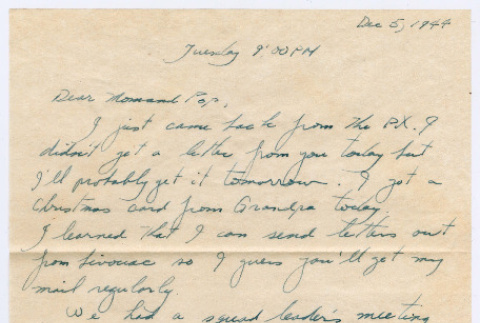 Dec 5, 1944
Tuesday 9:00 PM
Dear Mom and Pop,
I just came back from the P.X. I
didn't get a letter from you today but
I'll probably get it tomorrow. I got a
Christmas card from Grandpa today.
I learned that I can send letters out
from bivouac so I guess you'll get my
mail regularly.
We had a squad leader's meeting